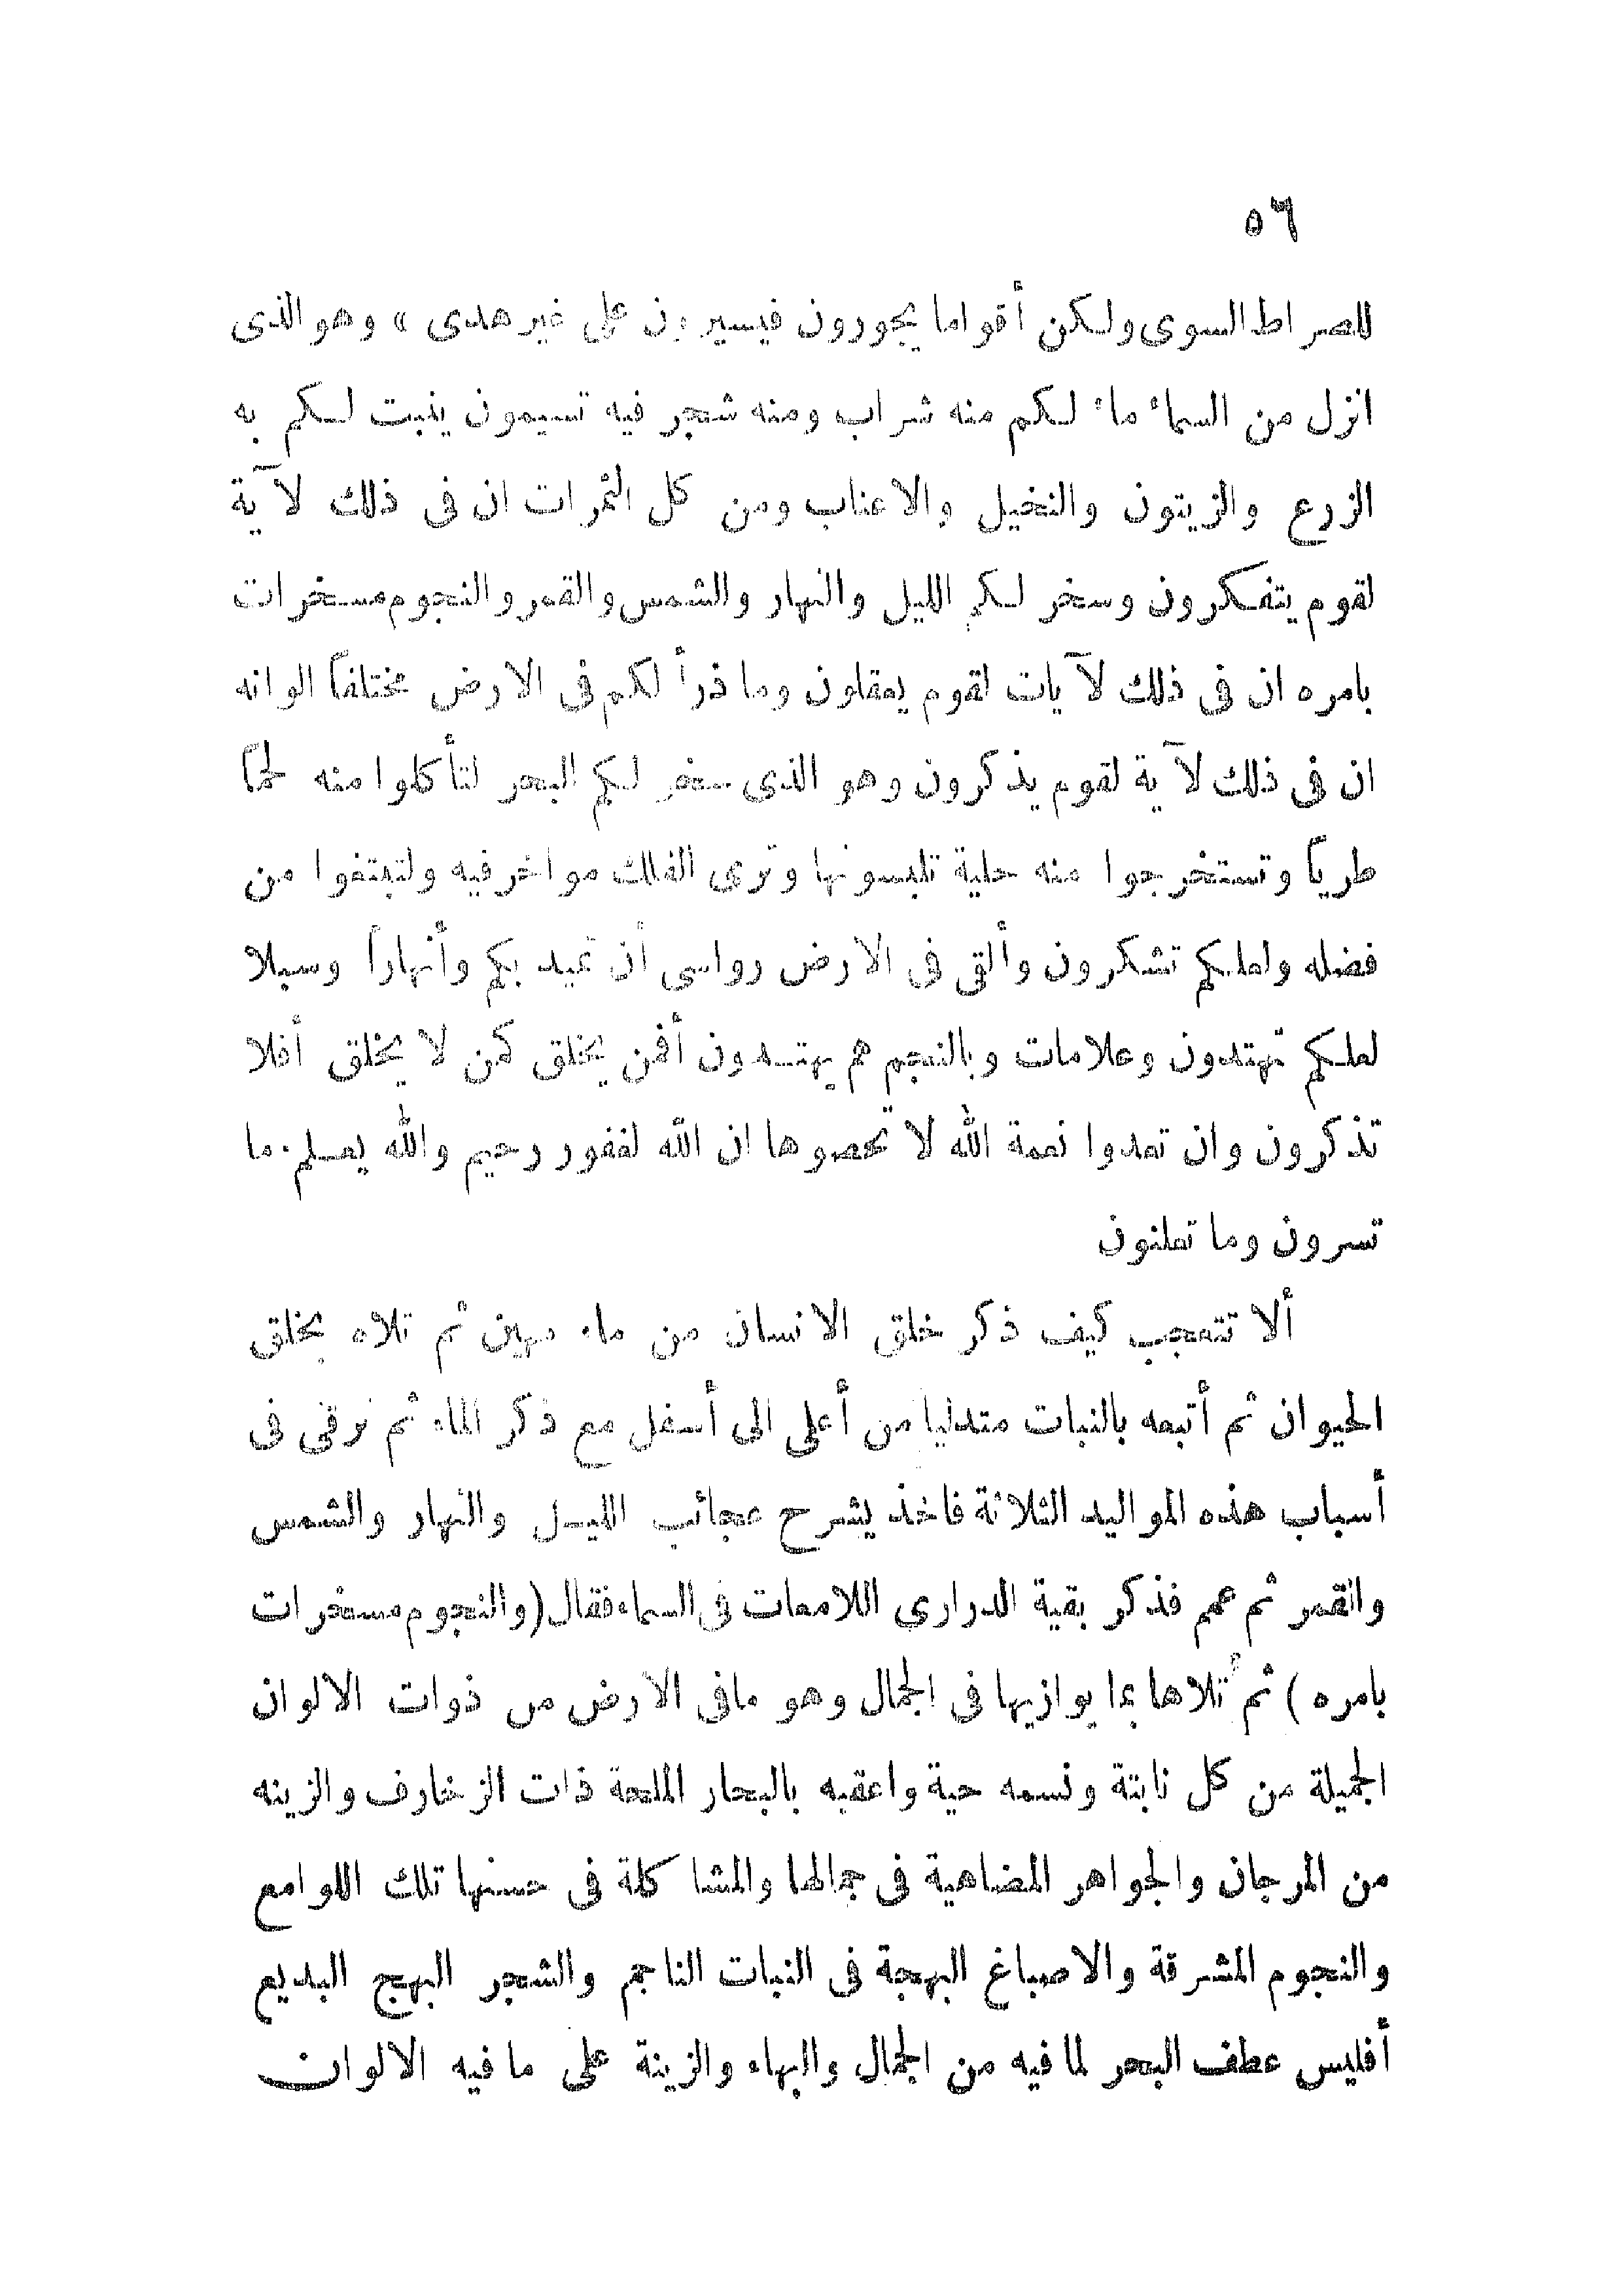 ٥٦
للصراط السوى ولكن أقواما يجورون فيسيرون على غير هدى » وهو الذى
انزل من السماء ماء لكم منه شراب ومنه شجر فيه تسيمون ينبت لكم به
الزرع والزيتون والنخيل والاعناب ومن كل الثمرات ان فى ذلك لآية
لقوم يتفكرون وسخر لكم الليل والنهار والشمس والقمر والنجوم مسخرات
بامره ان فى ذلك لآيات لقوم يعقلون وما ذرأ لكم فى الارض مختلفاً الوانه
ان فى ذلك لآية لقوم يذكرون وهو الذى سخر لكم البحر لتأكلوا منه لحماً
طرياً وتستخرجوا منه حلية تلبسونها وترى الفلك مواخر فيه ولتبتغوا من
فضله ولعلكم تشكرون وألقى فى الارض رواسى أن تميد بكم وأنهاراً وسبلا
لعلكم تهتدون وعلامات وبالنجم هم يهتدون أفمن يخلق كمن لا يخلق أفلا
تذكرون وان تعدوا نعمة الله لا تحصوها ان الله لغفور رحيم والله يعلم ما
تسرون وما تعلنون
ألا تتعجب كيف ذكر خلق الانسان من ماء مهين ثم تلاه بخلق
الحيوان ثم أتبعه بالنبات متدليا من أعلى الى أسفل مع ذكر الماء ثم ترقى فى
أسباب هذه المواليد الثلاثة فاخذ يشرح عجائب الليل والنهار والشمس
والقمر ثم عمم فذكر بقية الدرارى اللامعات فى السماء فقال (والنجوم مسخرات
بامره ) ثم تلاها بما يوازيها فى الجمال وهو مافى الارض من ذوات الالوان
الجميلة من كل نابتة ونسمه حية واعقبه بالبحار الملحة ذات الزخارف والزينه
من المرجان والجواهر المضاهية فى جمالها والمشاكلة فى حسنها تلك اللوامع
والنجوم المشرقة والاصباغ البهجة فى النبات الناجم والشجر البهج البديع
أفليس عطف البحر لما فيه من الجمال والبهاء والزينة على ما فيه الالوان